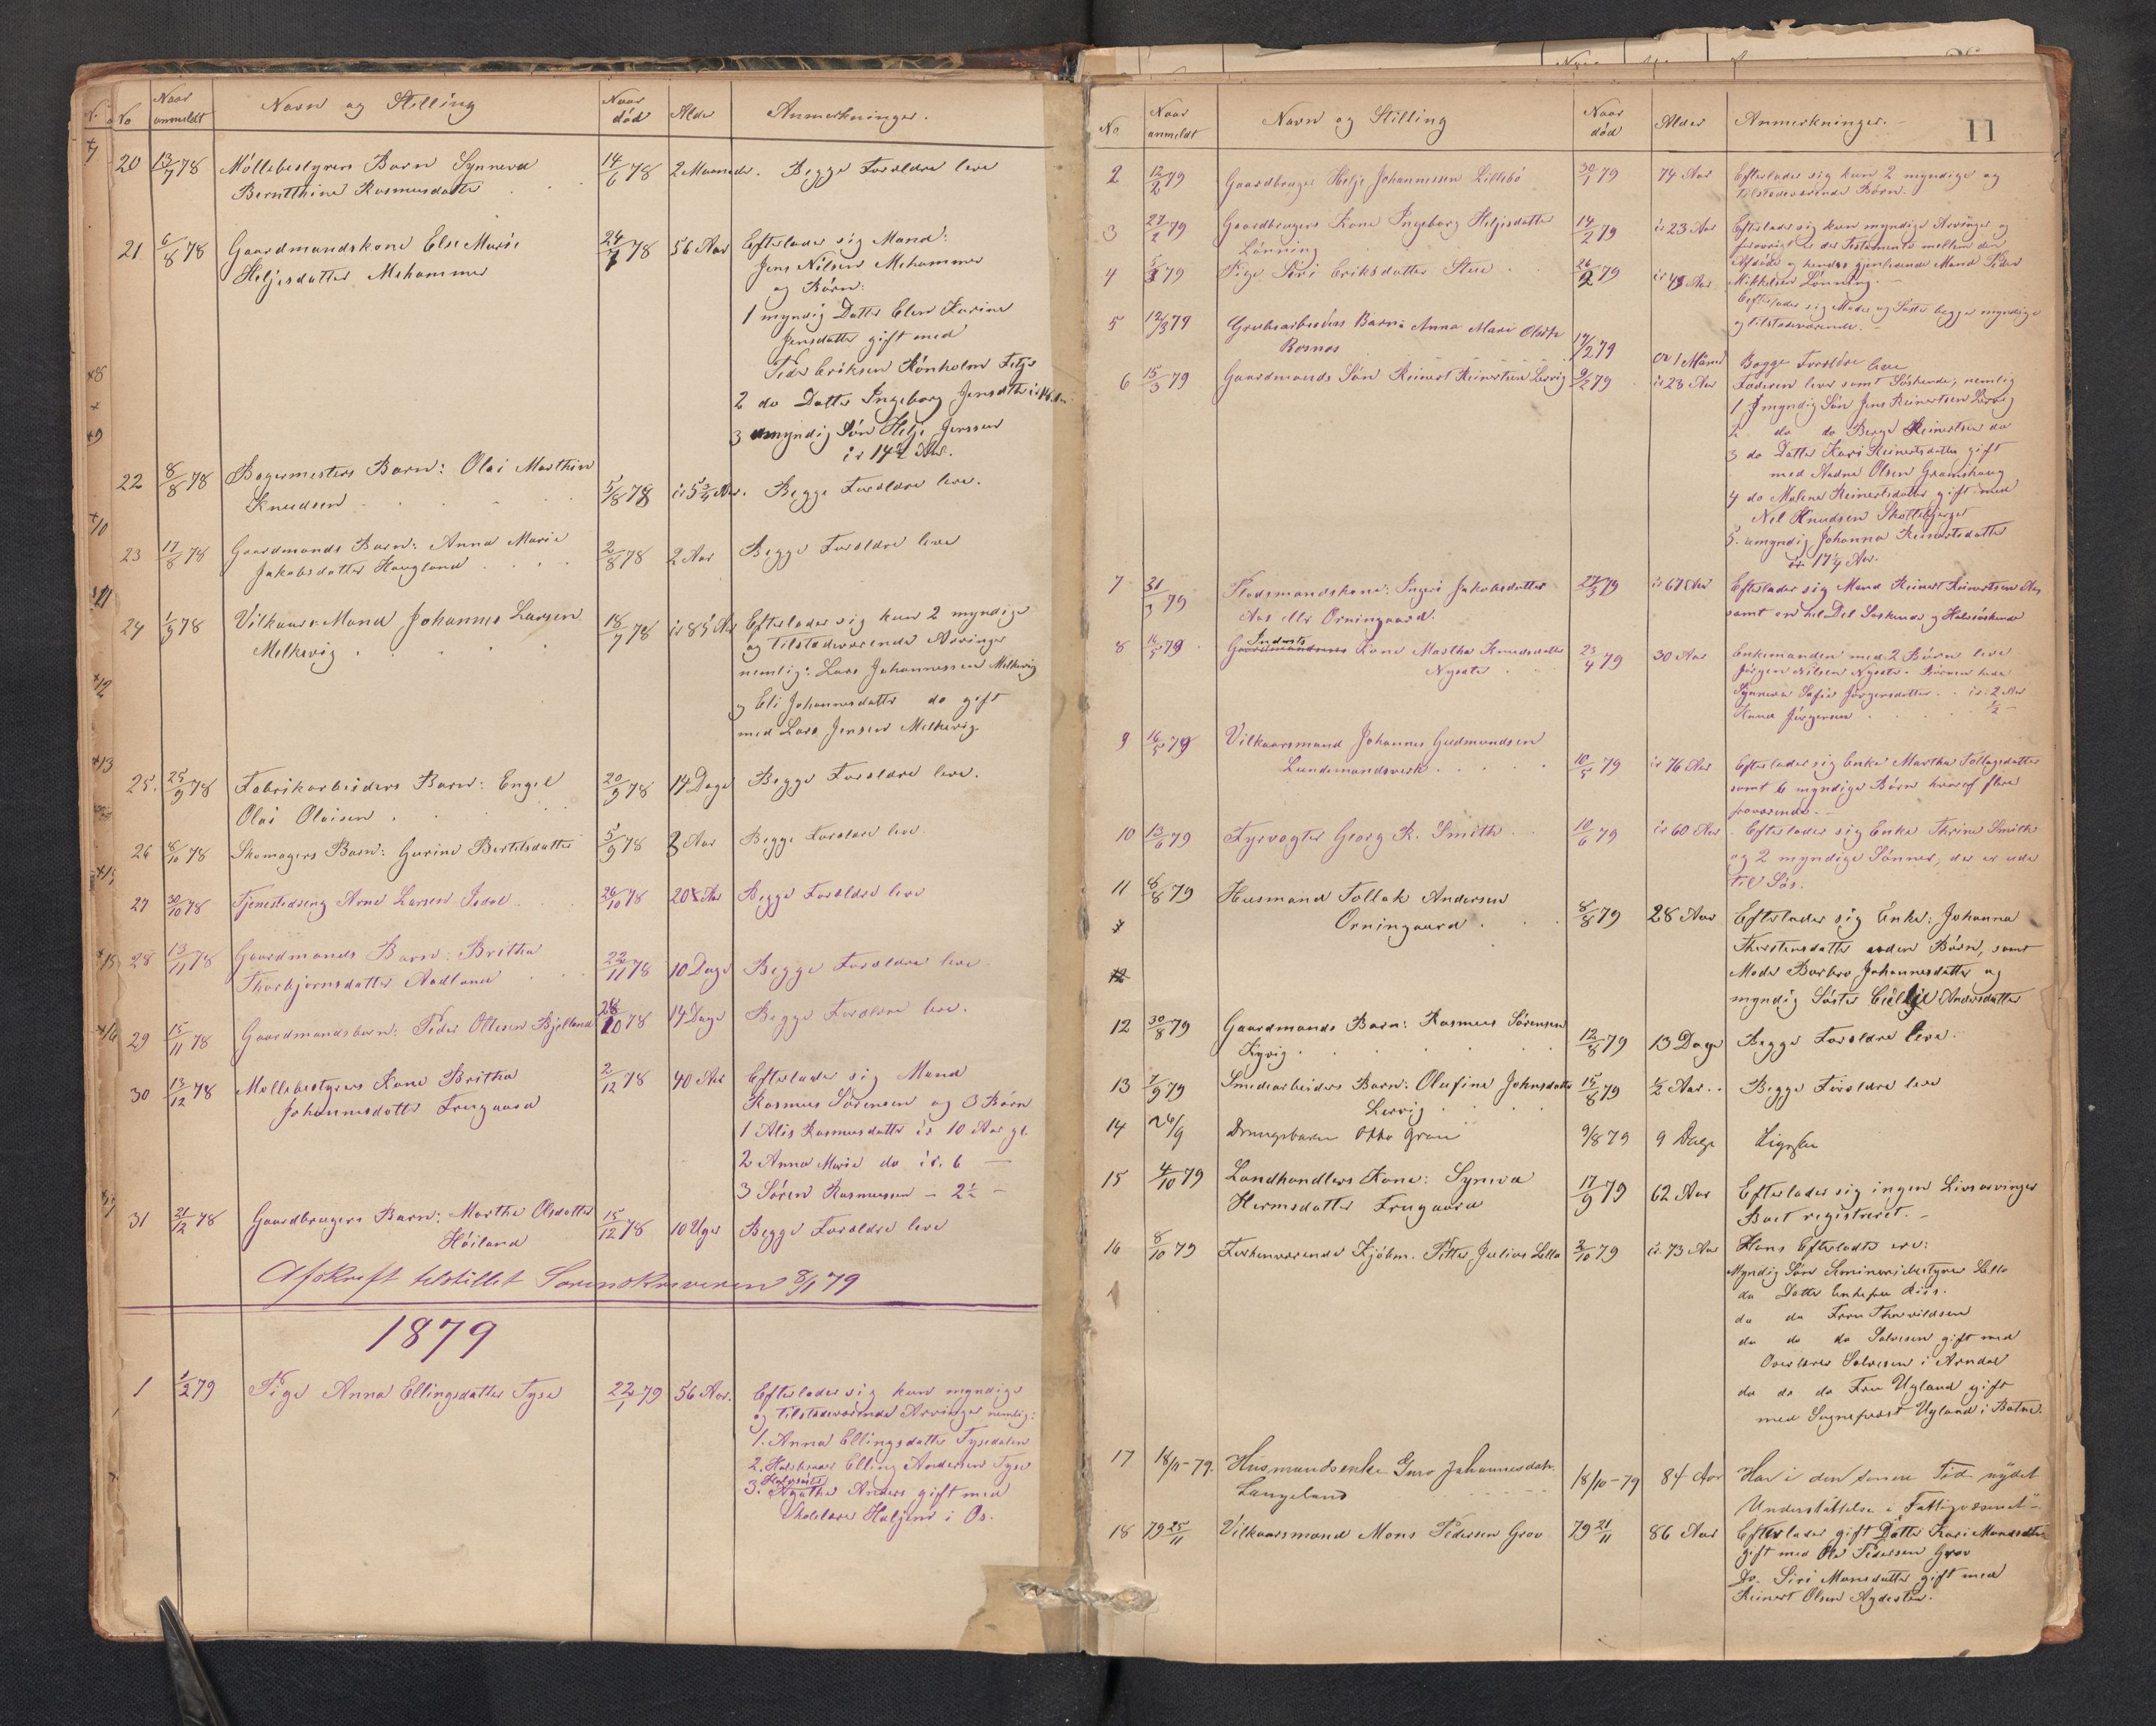 No
Naar anmeldt
Navn og Stilling
Naar død
Alder
Anmerkninger.
20 13/7 78 Møllebestyrers Barn Synneva 14/6 78 2 Maaneder. Begge Forældre leve
Bernthine Rasmusdatter
21 6/8 78 Gaardmandskone Else Marie 24/7 78 56 Aar Efterlader sig Mand:
Heljesdatter Mehammer Jens Nilsen Mehammer
og Børn:
1 myndig Datter Elen Karine
Jensdatter gift med
Peder Eriksen Rønholm Fitje
2 do Datter Ingeborg Jensdatter
3 umyndig Søn Helje Jenssen
ir 14 1/2 Aar.
22 8/8 78 Bagermesters Barn: Olai Marthin
Knudsen 5/8 78 Begge Forældre leve.
23 17/8 78 Gaardmands Barn: Anna Marie 2/8 78 2 Aar Begge Forældre leve
Jakobsdatter Haugland
24 1/9 78 Vilkaars Mand Johannes Larsen 18/7 78 ir 85 Aar Efterlader sig kun 2 myndige
Melkevig og tilstedeværende Arvinger
nemlig: Lars Johannessen Melkevig
og Eli Johannesdatter do gift
med Lars Jensen Melkevig
25. 25/9 78 Fabrikarbeiders Barn: Engel 20/9 78 14 Dage Begge Forældre leve.
Olai Olaisen
26 8/10 78 Skomagers Barn: Gurine Bertelsdatter 5/9 78 3 Aar Begge Forældre leve
27 30/10 78 Tjenestedreng Arne Larsen 26/10 78 Begge Forældre leve
28 13/11 78 Gaardmands Barn: Britha 22/11 78 10 Dage Begge Forældre leve
Thorbjørnsdatter Aadland
29 15/11 78 Gaardmandsbarn: Peder Ottesen Bjelland 28/10 78 14 Dage Begge Forældre leve.
30 13/12 78 Møllebestyrers Kone Britha 2/12 78 40 Aar Efterlader sig Mand
Johannesdatter Frugaard Rasmus Sørensen og 3 Børn
1 Alis Rasmusdatter ir 10 Aar gl.
2 Anna Marie do ir. 6 —
3 Søren Rasmussen – 2 1/2 –
31 21/12 78 Gaardbrugers Barn: Marthe Olsdatter 15/12 78 10 Uger Begge Forældre leve
Høiland
Afskreft tilstillet Sorenskriveren 8/1 79
1879
1 1/2 79 Pige Anna Ellingsdatter Tyse 22/1 79 56 Aar. Efterlader sig kun myndige
og tilstedeværende Arvinger nemlig:
1. Anna Ellingsdatter Tysedalen
2. Elling Andersen Tyse
Halvsøster
3. Agathe Anders gift med
Skolelærer Haljem i Os.
11
No
Naar anmeldt
Navn og Stilling
Naar død
Alder
Anmerkninger.
2 12/2 79 Gaardbruger Helje Johannessen Lillebø 30/1 79 74 Aar Efterlader sig kun 2 myndige og
tilstedeværende Børn.
3 27/2 79 Gaardbrugers Kone Ingeborg Heljesdatter 14/2 79 ir 23 Aar Efterlader sig kun myndige Arvinger og
Lønning forøvrigt er der Testamente mellem den
Afdøde og hendes gjenlevende Mand Peder
Mikkelsen Lønning.
4 79 Pige Siri Eriksdatter Stue 26/2 79 Efterlader sig Moder og Søster begge myndige
og tilstedeværende.
5 12/3 79 Grubearbeiders Barn: Anna Marie Olsdtr 17/2 79 1 Maaned Begge Forældre leve
6 15/3 79 Gaardmands Søn Reinert Reinertsen Lervig 9/2 79 ir 28 Aar Faderen lever samt Søskende, nemlig
1 myndig Søn Jens Reinertsen Lervig
2 do do Berge Reinertsen do
3 do Datter Kari Reinertsdatter gift
med Andne Olsen Gramshaug
4 do Malene Reinertsdatter gift med
Nil Knudsen Skottebjerget
5. umyndig Johanna Reinertsdatter
ir 17 1/4 Aar.
7 31/3 79 Pladsmandskone: Ingeri Jakobsdatter 27/3 79 ir 67 Aar Efterlader sig Mand Reinert Reinertsen Aas
Aas eller Orningaard. samt en hel Del Søskende og Halvsøskende
8 14/5 79 Inderste
Gaardmandens Kone Martha Knudsdatter 23/4 79 30 Aar Enkemanden med 2 Børn leve
Nysæter Jørgen Nilsen Nysæter. Børnene hede
Synneva Sofie Jørgensdatter ir 2 Aar
Knud Jørgensen 1/2 –
9 16/5 79 Vilkaarsmand Johannes Gudmundsen
Lundemandsverk 10/5 79 ir 76 Aar Efterlader sig Enke Martha Tollagsdatter
samt 6 myndige Børn hvoraf flere
fraværende.
10 13/6 79 Fyrvogter Georg R. Smith 10/6 79 ir 60 Aar Efterlader sig Enke Thrine Smith
og 2 myndige Sønner, der er ude
til Søs.
11 8/8 79 Husmand Tollak Andersen
Orningaard 8/8 79 28 Aar Efterlader sig Enke: Johanna
Thorstensdatter uden Børn, samt
Moder Barbro Johannesdatter og
myndig Søster Andersdatter
12 30/8 79 Gaardmands Barn: Rasmus Sørensen 12/8 79 13 Dage Begge Forældre leve.
Kyvig
13 7/9 79 Smedearbeiders Barn: Olufine Johnsdatter 15/8 79 1/2 Aar. Begge Forældre leve
Lervig
14 26/9 Drengebarn Otto Gran 9/8 79 9 Dage Ligesaa
15 4/10 79 Landhandlers Kone: Syneva 17/9 79 62 Aar Efterlader sig ingen Livsarvinger
Hermsdatter Frugaard Boet registreret.
16 8/10 79 Forhenværende Kjøbm. Petter Julius Lella 2/10 79 ir. 73 Aar Hans Efterladte ere:
Myndig Søn Seminariebestyrer Lella
do Datter Enkefru Riis.
do do Fru Thorvildsen
do do do Salvesen gift med
Overlærer Salvesen i Arndal
do do do Fru Ugland gift
med Sogneprest Ugland i Botne.
17 18/11 - 79. Husmandsenke Guro Johannesdatr. 18/10 - 79 84 Aar Har i den senere Tid nydet
Langeland Understøttelse a Fattigvæsenet
18 79 25/11 Vilkaarsmand Mons Pedersen Grov 79 21/11 86 Aar Efterlader gift Datter Kari Monsdatter
gift med Ole Pedersen Grov
Do. Siri Monsdatter gift med
Reinert Olsen Agdesten.